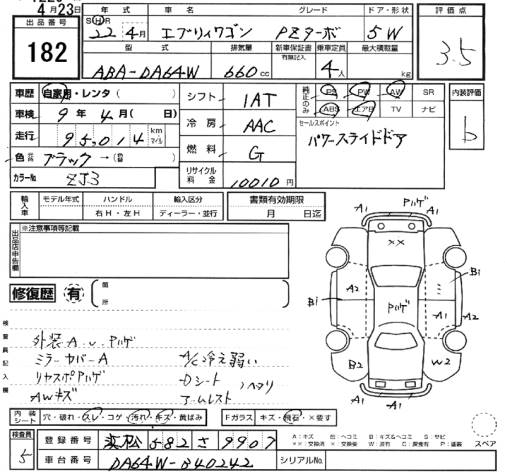 4月23日
出品番号
182
年式 車名 グレード ドア・形状 評価点
SⒽR
22年4月 エブリィワゴン PZターボ 5W 3.5
型式 排気量 新車保証書 有無記入 乗車定員 最大積載量
ABA-DA64W 660cc 4人 kg
車歴 自家用・レンタ( )
車検 9年4月( 日)
走行 95,014 km マイル
色 ブラック→(色替)
カラーNo ZJ3
シフト IAT
冷房 AAC
燃料 G
リサイクル料金 10010円
純正のみ PS PW AW SR
ABS エアB TV ナビ
内装評価
b
セールスポイント
パワースライドドア
輸入車 モデル年式 ハンドル 輸入区分
右H・左H ディーラー・並行
書類有効期限
月 日迄
出品店申告欄
※注意事項等記載
修復歴 有 箇所
検査員記入欄
外装A.U.Pハゲ
ミラーカバーA A/C冷え弱い
リヤスポPハゲ Dシート
AWキズ アームレスト ヘタリ
A1 Pハゲ A1
A1
××
A2
Bi
Bi
Pハゲ
A1
A2
B2
W2
A1
A1
内装シート 穴・破れ・スレ・コゲ・汚れ・キズ・黄ばみ
Fガラス キズ・飛石・×要す
スペア
検査員 5
登録番号 浜松 582 さ 9907
車台番号 DA64W-340242
シリアルNo.